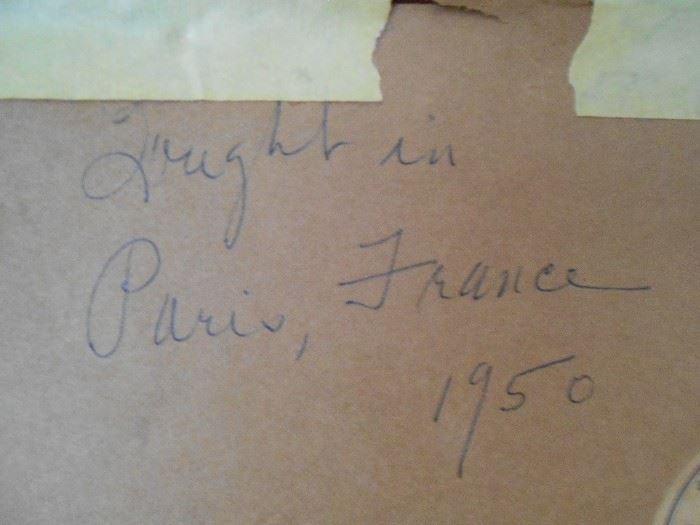 Bought in
Paris, France
1950